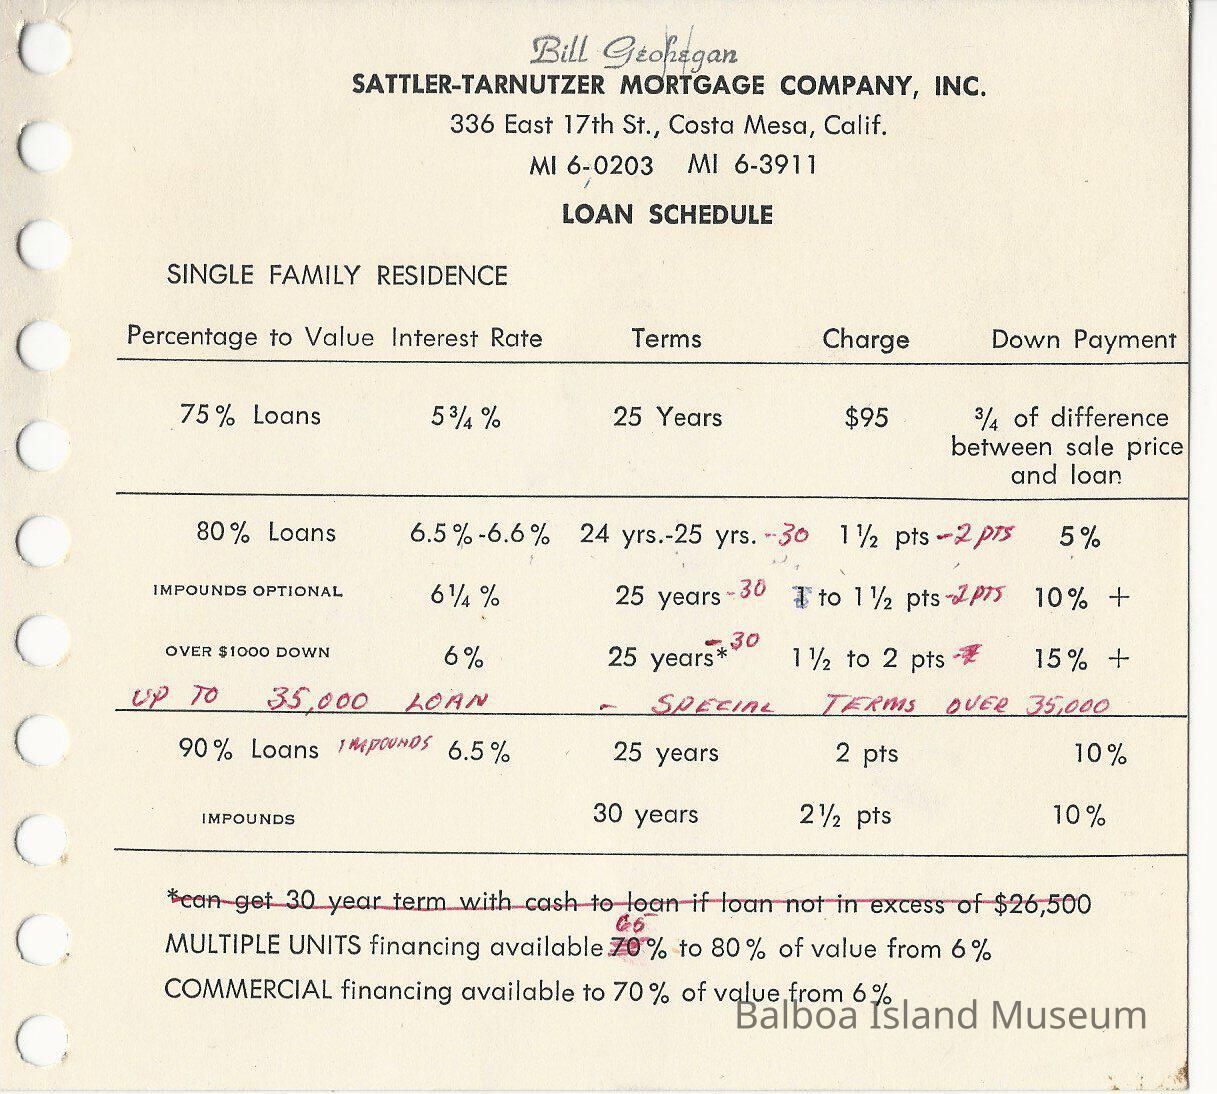 Bill Geohegan
SATTLER-TARNUTZER MORTGAGE COMPANY, INC.
336 East 17th St., Costa Mesa, Calif.
MI 6-0203 MI 6-3911
LOAN SCHEDULE
SINGLE FAMILY RESIDENCE
Percentage to Value Interest Rate Terms Charge Down Payment
75% Loans 5¾% 25 Years $95 ¾ of difference
between sale price
and loan
80% Loans 6.5%-6.6% 24 yrs.-25 yrs. -30 1½ pts -2 PTS 5%
IMPOUNDS OPTIONAL 6¼% 25 years -30 1 to 1½ pts -2 PTS 10% +
OVER $1000 DOWN 6% 25 years* -30 1½ to 2 pts 15% +
UP TO 35,000 LOAN - SPECIAL TERMS OVER 35,000
90% Loans IMPOUNDS 6.5% 25 years 2 pts 10%
IMPOUNDS 30 years 2½ pts 10%
*can get 30 year term with cash to loan if loan not in excess of $26,500
65
MULTIPLE UNITS financing available 70% to 80% of value from 6%
COMMERCIAL financing available to 70% of value from 6%
Balboa Island Museum